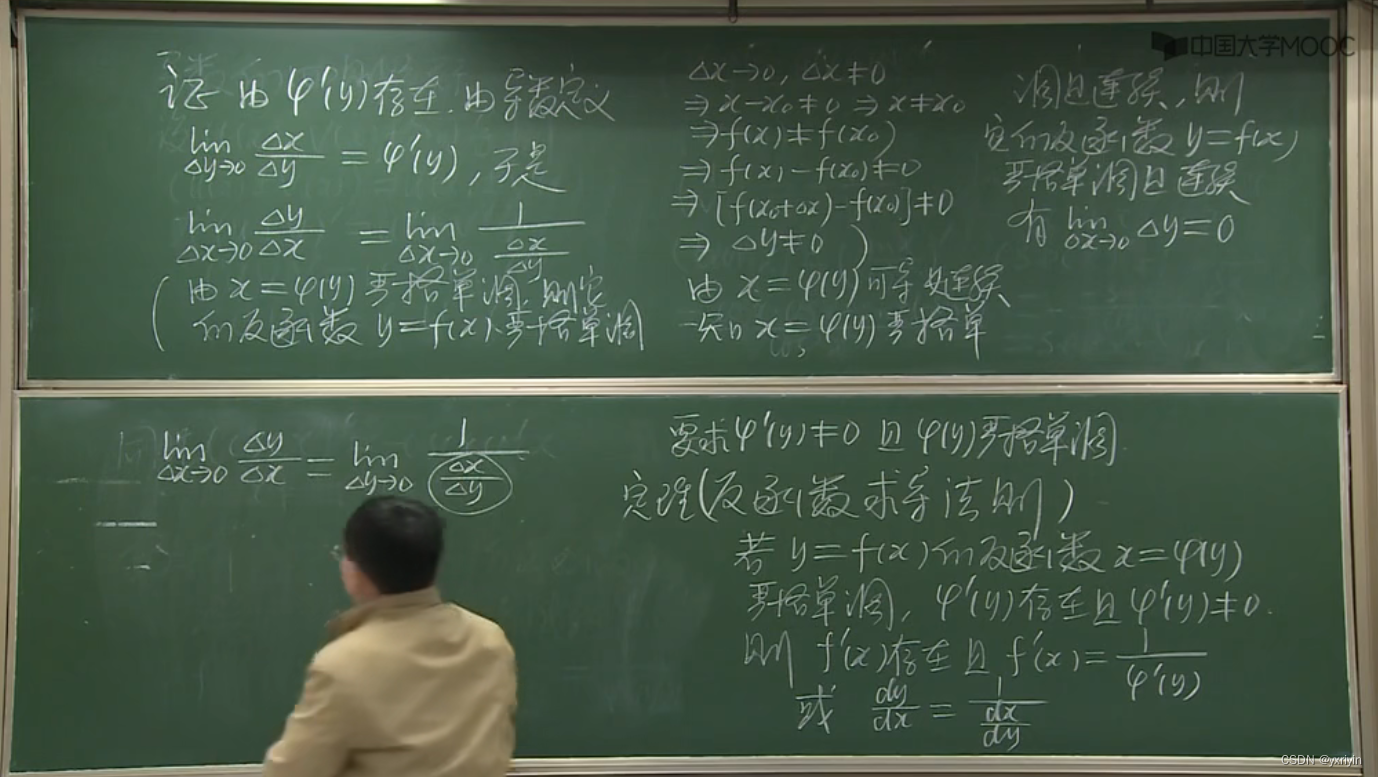 中国大学MOOC
证 由 φ'(y)存在.由导数定义
lim Δy→0 Δx/Δy = φ'(y), 于是
lim Δx→0 Δy/Δx = lim Δx→0 1/(Δx/Δy)
(由 x=φ(y) 严格单调,则它
的反函数 y=f(x)严格单调
Δx→0, Δx≠0
⇒ x-x₀≠0 ⇒ x≠x₀
⇒f(x)≠f(x₀)
⇒f(x)-f(x₀)≠0
⇒[f(x₀+Δx)-f(x₀)]≠0
⇒ Δy≠0 )
由 x=φ(y)可导必连续
知 x=φ(y)严格单
调且连续,则
它的反函数 y=f(x)
严格单调且连续
有 lim Δx→0 Δy=0
lim Δx→0 Δy/Δx = lim Δy→0 1/(Δx/Δy)
要求φ'(y)≠0 且 φ(y)严格单调.
定理(反函数求导法则)
若 y=f(x)的反函数 x=φ(y)
严格单调, φ'(y)存在且φ'(y)≠0.
则 f'(x)存在且 f'(x)=1/φ'(y)
或 dy/dx = 1/(dx/dy)
CSDN @yxriyin